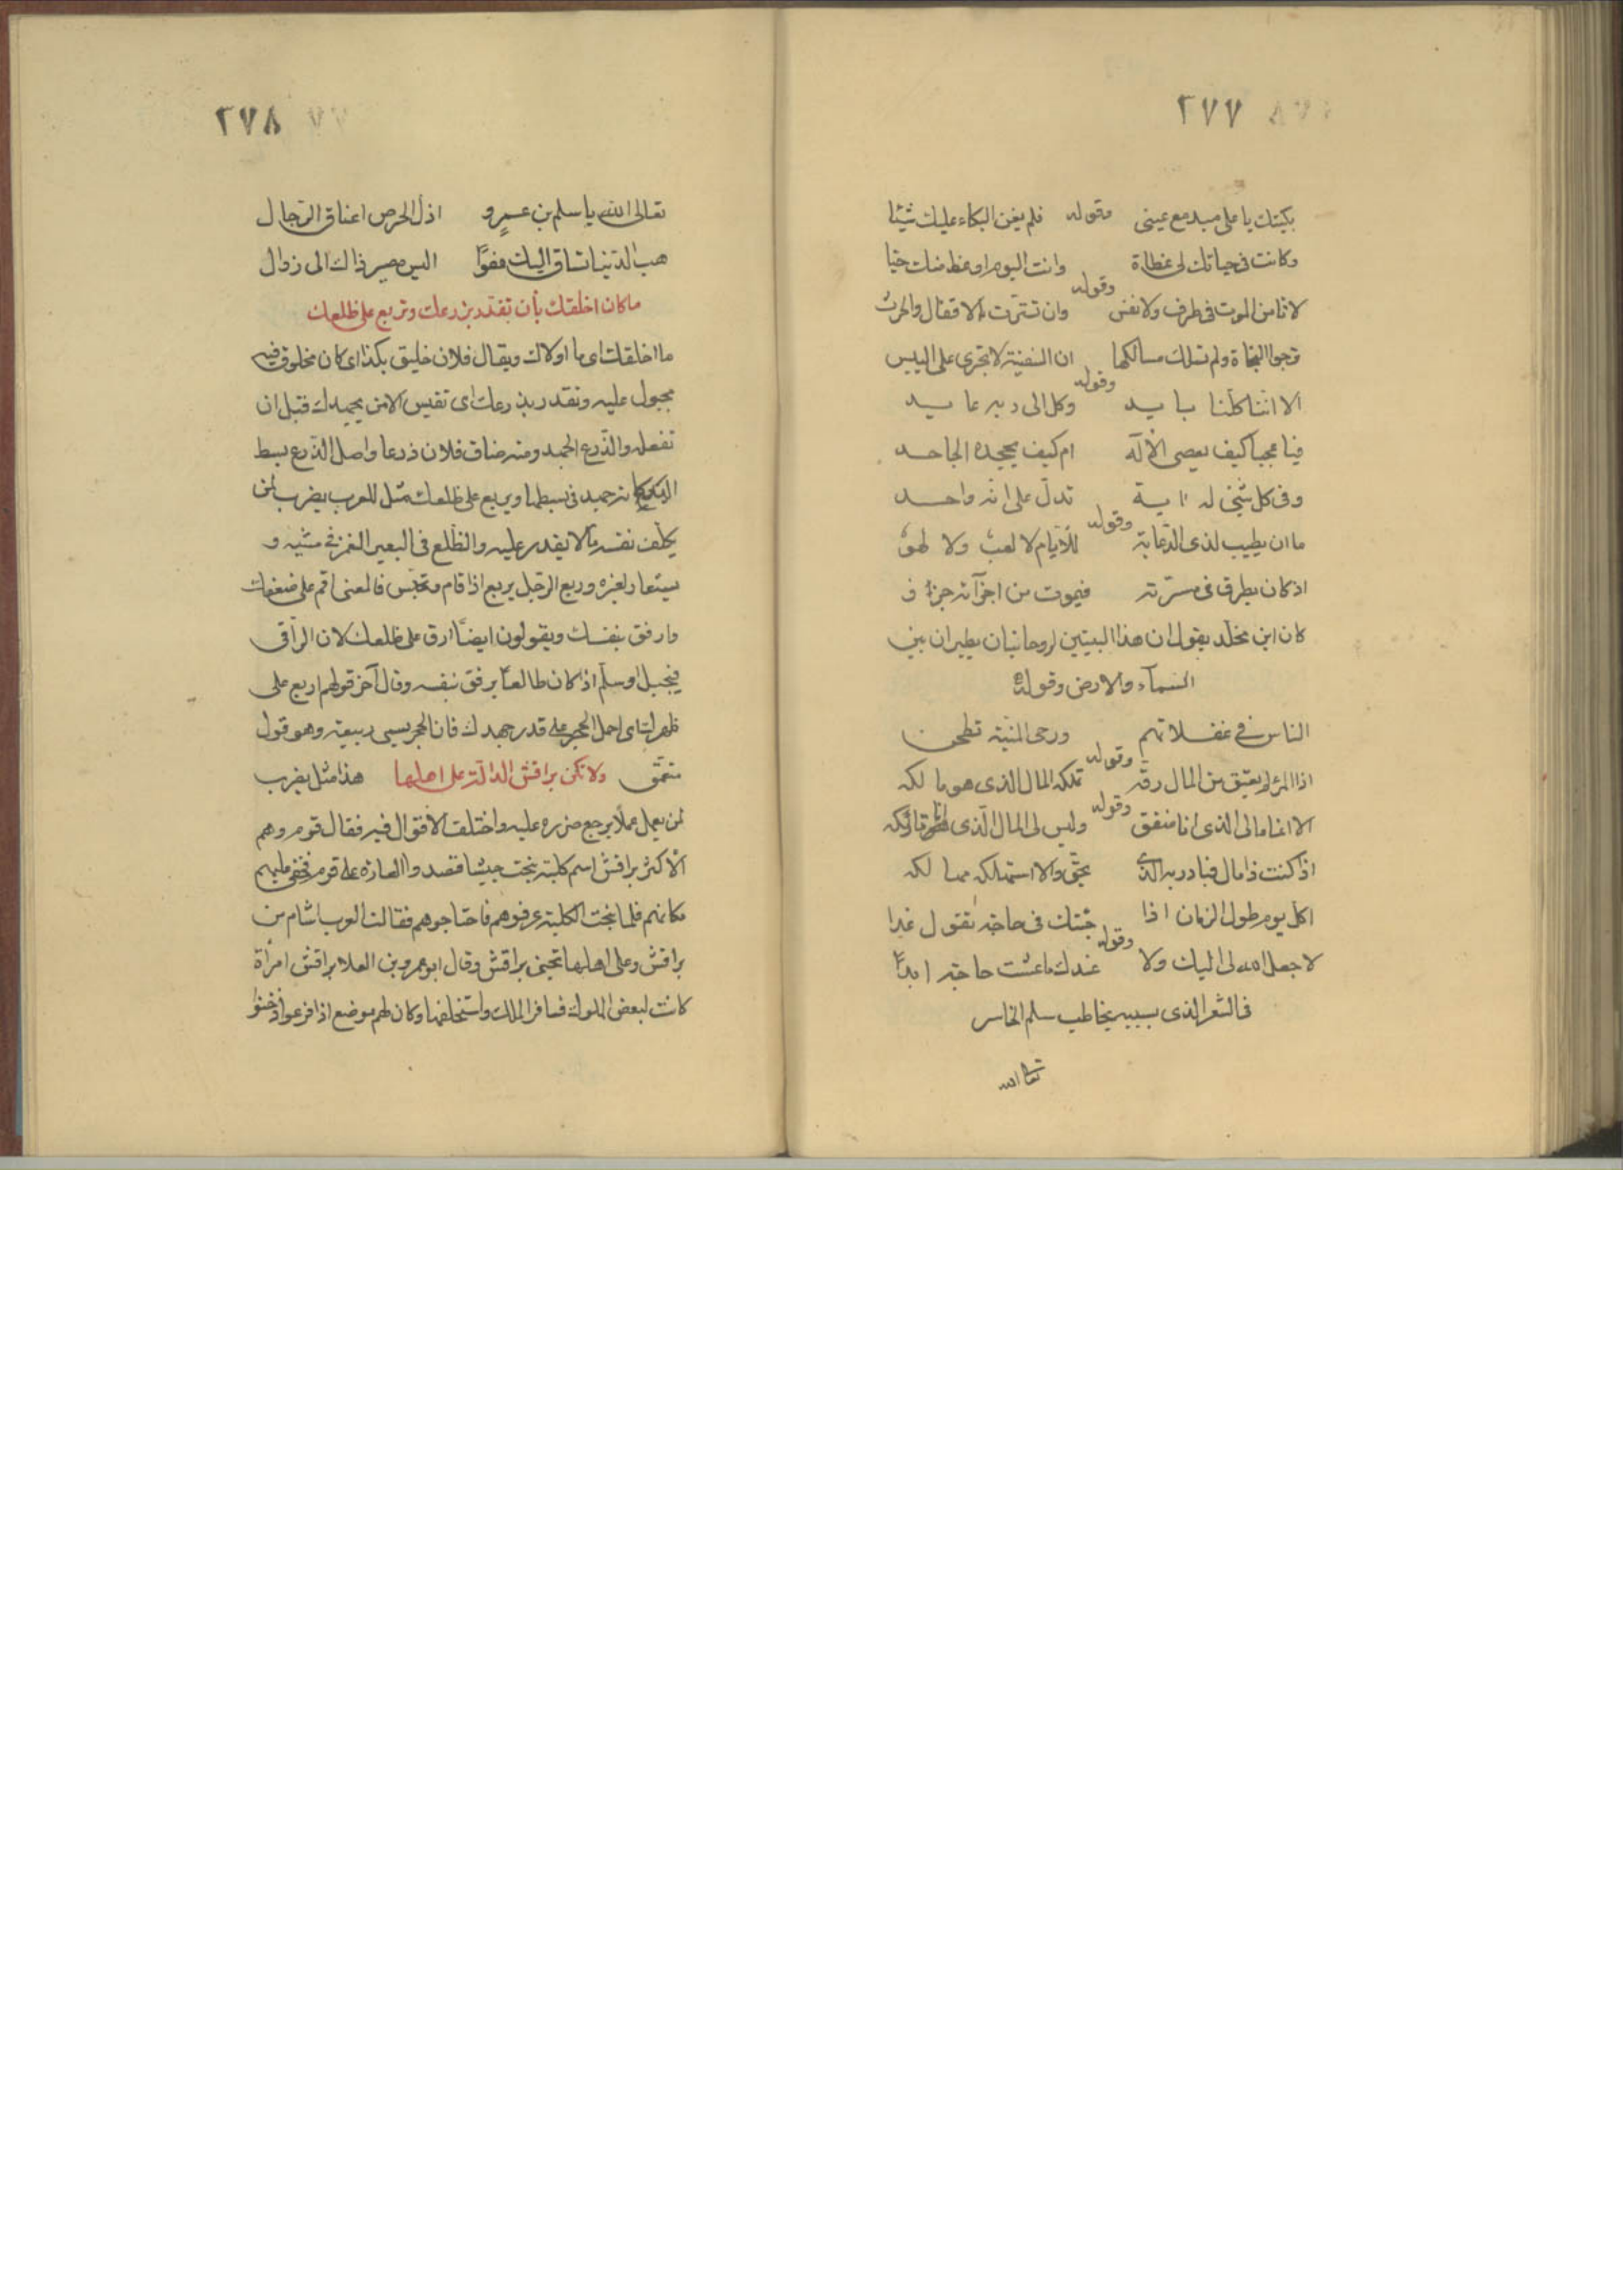 ٢٧٧
بكيتك يا على بدمع عينى وقوله فلم يغن البكاء عليك شيئا
وكانت فى حياتك لى عظاة وانت اليوم اوعظ منك حيا
وقوله
لا تامن الموت فى طرف ولا نفس وان تسترت بالاقفال والحرس
ترجوا النجاة ولم تسلك مسالكها ان السفينة لا تجرى على اليبس
وقوله
الا اننا كلنا بايد وكل الى ربه عايد
فيا عجبا كيف يعصى الاله ام كيف يجحده الجاحد
وفى كل شئ له اية تدل على انه واحد
وقوله
ما ان يطيب لذى الدعابة للأيام لا لعب ولا لهو
اذ كان يطرق فى مسرته فيموت من اجزآئه جزؤ
كان ابن مخلد يقول ان هذا البيتين لروحانيان يطيران بين
السمآء والارض وقوله
الناس فى غفلاتهم ورحى المنية تطحن
وقوله
اذا المرء لم يعتق من المال رقه تملكه المال الذى هو مالكه
وقوله
الا انما مالى الذى انا منفق وليس لى المال الذى انا تاركه
اذا كنت ذا مال فبادر به الذى بحق والا استهلكه مهالكه
اكل يوم طول الزمان اذا جئتك فى حاجة تقول غدا
وقوله
لا جعل الله لى اليك ولا عندك ما عشت حاجة ابدا
فى الشعر الذى بسببه يخاطب سلم الخاسر
تعالى الله
٢٧٨
تعالى الله يا سلم بن عمرو اذل الحرص اعناق الرجال
هب الدنيا تساق اليك عفوا اليس مصير ذاك الى زوال
ما كان اخلقك بأن تقدر بذرعك وتربع على ظلعك
ما اخلقك اى ما اولاك ويقال فلان خليق بكذا اى كان مخلوق فيه
مجبول عليه وتقدر بذرعك اى تقيس الامر بجهدك قبل ان
تفعله والذرع الجهد ومنه ضاق فلان ذرعا واصل الذرع بسط
اليد كانه جهد فى بسطها ويربع على ظلعك مثل للعرب يضرب لمن
يكلف نفسه ما لا يقدر عليه والظلع فى البعير الغمز فى مشيه و
يستعار لغيره وربع الرجل يربع اذا قام وتحبس فالمعنى اقم على ضعفك
وارفق بنفسك ويقولون ايضا ارق على ظلعك لان الراقى
فى جبل او سلم اذا كان ظالعا يرفق بنفسه وقال آخر قولهم اربع على
ظهرك اى احمل الحجر على قدر جهدك فان الحجر يسمى ربيعة وهو قول
متعمق ولا تكن براقش الدالة على اهلها هذا مثل يضرب
لمن يعمل عملا يرجع ضرره عليه واختلف الاقوال فيه فقال قوم وهم
الأكثر براقش اسم كلبة نبحت جيشا قصدوا الغارة على قوم فخفى عليهم
مكانهم فلما نبحت الكلبة عرفوهم فاجتاحوهم فقالت العرب اشام من
براقش وعلى اهلها تجنى براقش وقال ابو عمرو بن العلا براقش امرأة
كانت لبعض الملوك فسافر الملك واستخلفها وكان لهم موضع اذا فزعوا دخنوا